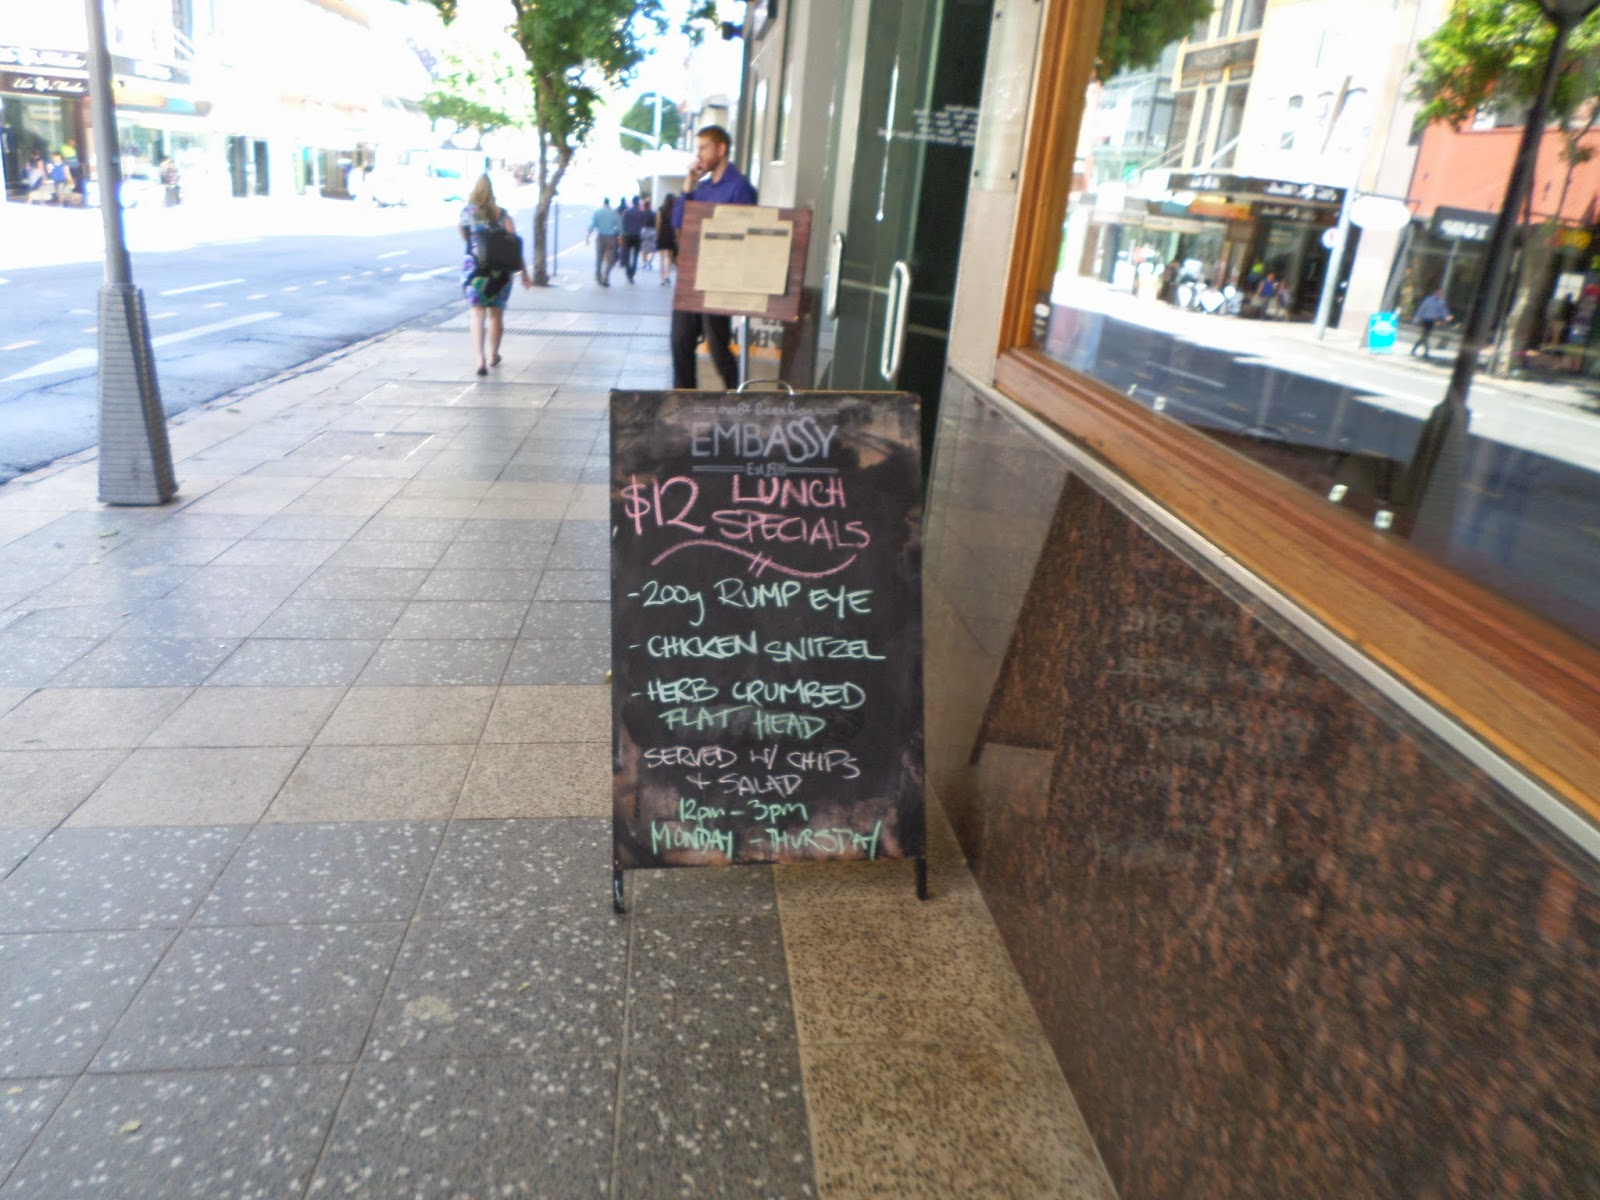 craft beer bar
EMBASSY
$12 LUNCH
SPECIALS
-200g RUMP EYE
-CHICKEN SNITZEL
-HERB CRUMBED
FLAT HEAD
SERVED W/ CHIPS
+ SALAD
12pm-3pm
MONDAY -THURSDAY